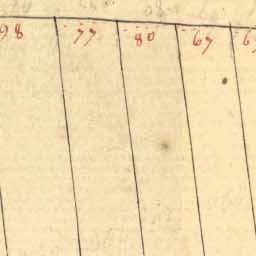 98 77 80 67